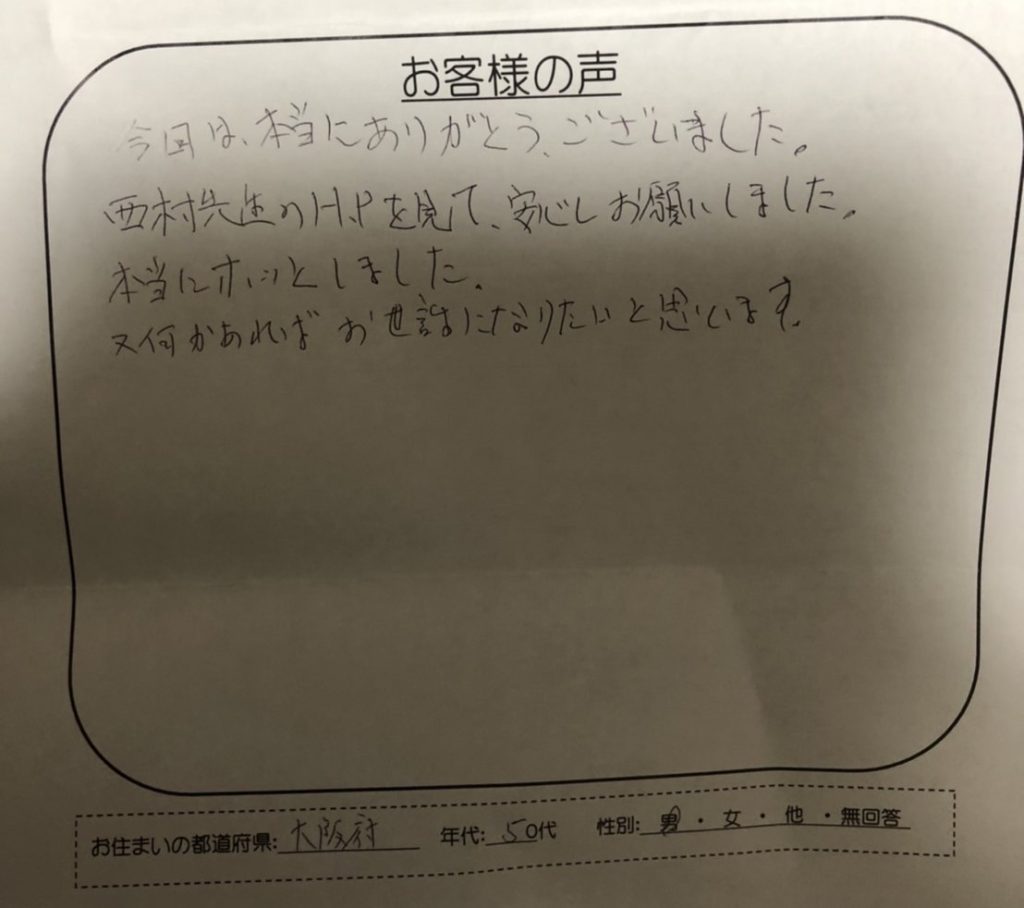 お客様の声
今回は、本当にありがとう、ございました。
西村先生のH.Pを見て、安心しお願いしました。
本当にホッとしました。
又何かあればお世話になりたいと思います。
お住まいの都道府県: 大阪府 年代: 50代 性別: 男・女・他・無回答